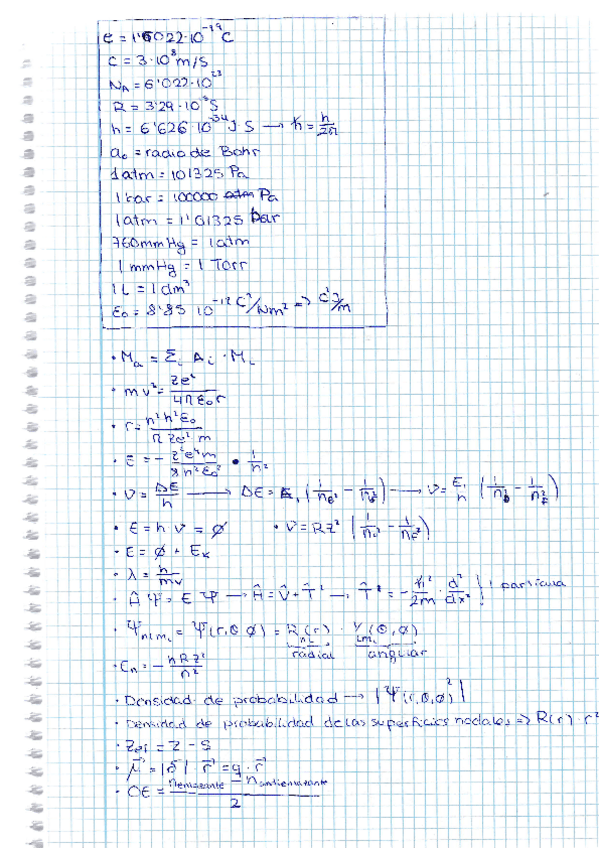 e = 1'6022·10⁻¹⁹ C
c = 3·10⁸ m/s
N_A = 6'022·10²³
R = 3'29·10 S
h = 6'626·10⁻³⁴ J·S → ħ = h/2π
a₀ = radio de Bohr
1 atm = 101325 Pa
1 bar = 100000 atm Pa
1 atm = 1'01325 bar
760 mmHg = 1 atm
1 mmHg = 1 Torr
1 L = 1 dm³
ε₀ = 8'85 10⁻¹² C²/Nm² => C²J/m
· M_a = Σ_i A_i · M_i
· mv² = Ze²/4πε₀r
· r = n²h²ε₀/π Ze² m
· E = - z²e⁴m/8h²ε₀² · 1/n²
· ν = ΔE/h → ΔE = E₁ (1/n₀² - 1/n_f²) → ν = E₁/h (1/n₀² - 1/n_f²)
· E = h ν = ϕ · ν = Rz² (1/n₀² - 1/n_f²)
· E = ϕ + E_k
· λ = h/mv
· Ĥ Ψ = E Ψ → Ĥ = V̂ + T̂² → T̂² = - ħ²/2m · d²/dx² ! 1 partícula
· Ψ_nlm_l = Ψ(r,θ,ϕ) = R_nl(r) · Y_lm_l(θ,ϕ)
radial angular
· E_n = - hRz²/n²
· Densidad de probabilidad → |Ψ(r,θ,ϕ)²|
· Densidad de probabilidad de las superficies nodales => R(r)·r²
· Zef = Z - S
· μ⃗ = |δ| r⃗ = q · r⃗
· OE = n enlazante - n antienlazante / 2